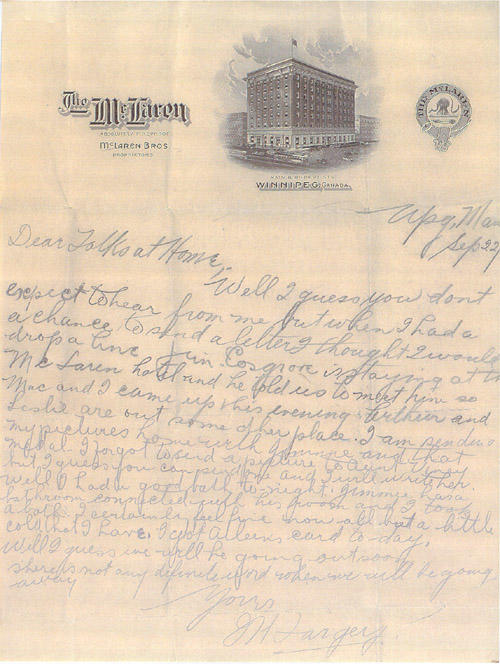 The McLaren
ABSOLUTELY FIREPROOF
McLAREN BROS.
PROPRIETORS
MAIN & RUPERT STS.
WINNIPEG, CANADA.
THE McLAREN
Wpg, Man
Sep 22
Dear Folks at Home,
Well I guess you don't
expect to hear from me but when I had
a chance to send a letter I thought I would
drop a line. Jim Cosgrove is staying at the
McLaren hotel and he told us to meet him so
Mac and I came up this evening. Arthur and
Leslie are out some other place. I am sending
my pictures home with Jimmie and that
medal. I forgot to send a picture to Aunt
but I guess you can send one and I will write her.
Well I had a good bath to night. Jimmie has a
bathroom connected with his room and I took
a bath. I certainly feel fine now all but a little
cold that I have. I got Aileens card to-day.
Well I guess we will be going out soon
there is not any definite word when we will be going
away
Yours